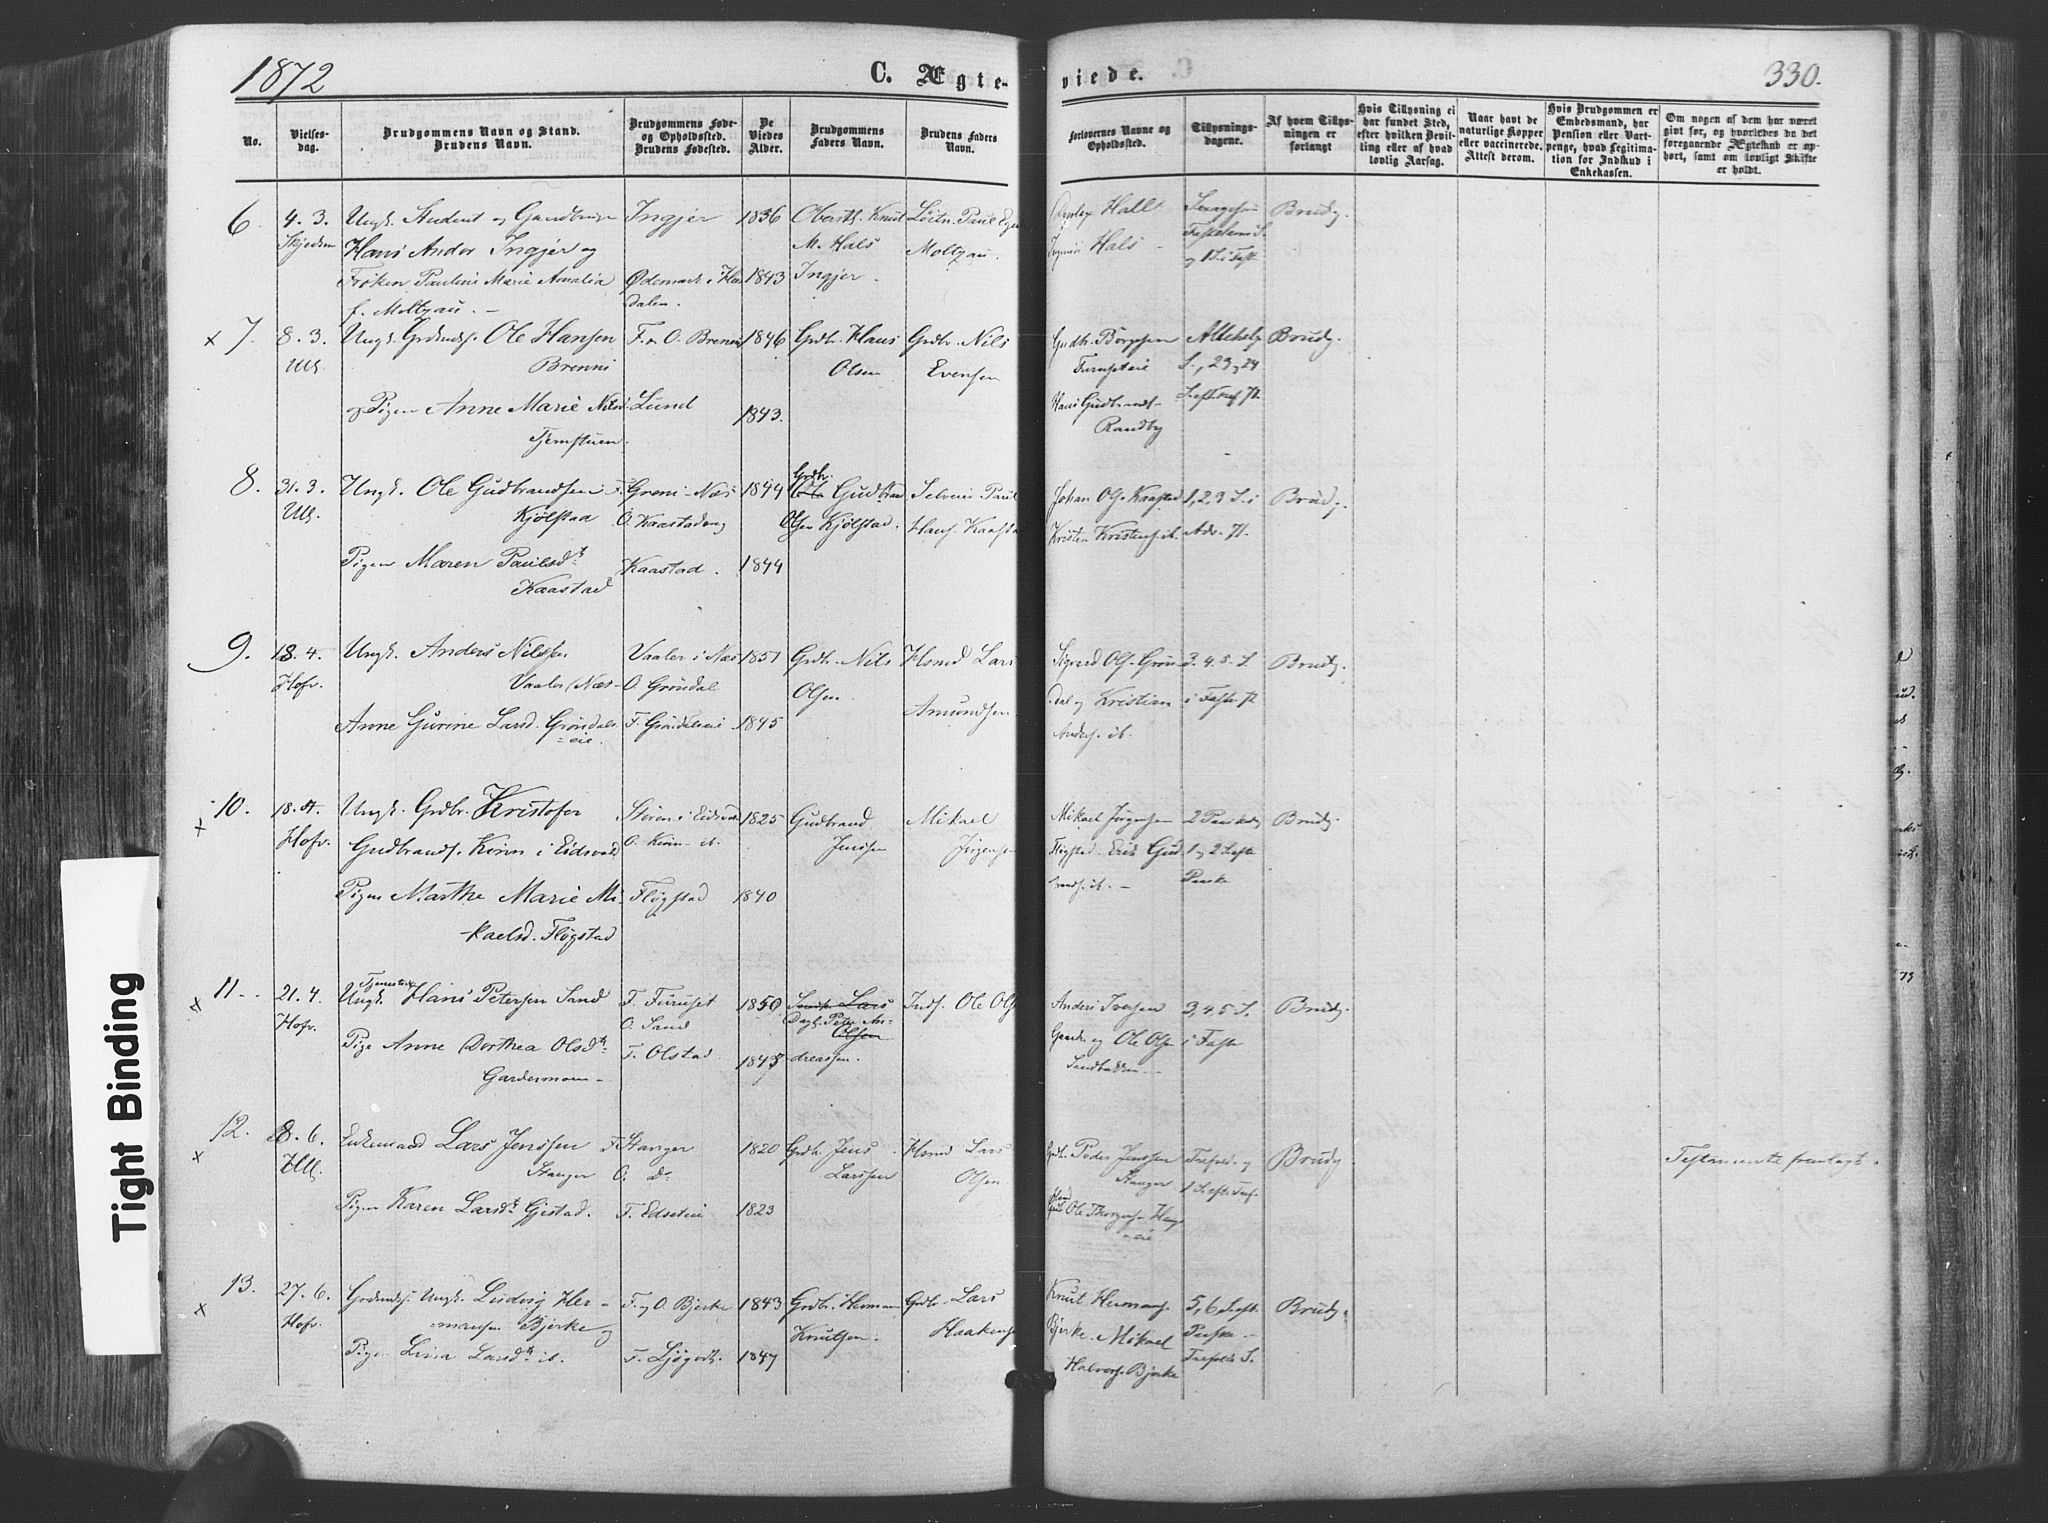 1872
C. Ægte-
viede.
330.
No.
Vielses-dag.
Brudgommens Navn og Stand. Brudens Navn.
Brudgommens Føde- og Opholdsted. Brudens Fødested.
De Viedes Alder.
Brudgommens Faders Navn.
Brudens Faders Navn.
Forlovernes Navne og Opholdsted.
Tillysnings-dagene.
Af hvem Tillysningen er forlangt
Hvis Tillysning ei har fundet Sted, efter hvilken Bevilling eller af hvad lovlig Aarsag.
Naar havt de naturlige Kopper eller vaccinerede. Attest derom.
Hvis Brudgommen er Embedsmand, har Pension eller Vartpenge, hvad Legitimation for Indskud i Enkekassen.
Om nogen af dem har været givt før, og hvorledes da det foregaaende Ægteskab er ophørt, samt om lovligt Skifte er holdt.
6
4. 3.
Skjedsm
Ungk. Student og Gaardbruger
Hans Anders Ingjer og
Frøken Pauline Marie Amalia
f. Moltzau. -
Ingjer
Ødemark i Høl
dalen.
1836
1843
Oberstl. Knut
M. Hals
Ingjer.
Løitn. Paul
Moltzau.
Hall
Hals -
Brudg.
x 7.
8. 3.
Ull.
Ungk. Grdmds. Ole Hansen
Brenni
og Pigen Anne Marie Nilsd.
Tjernstuen.
F. o O. Brenni
Lund
1846
1843.
Grdbr. Hans
Olsen
Grdbr. Nils
Evensen
Gudbr. Børgesen
Hans Gudbrands.
Randby
Allehelg
S., 23, 24
Brudg.
8.
31. 3.
Ull.
Ungk. Ole Gudbrandsen
Kjølstad
Pigen Maren Paulsdt.
Kaastad
F. Greni - Næs
O. Kaastadeng
Kaastad.
1844
1844
Grdbr.
Gudbran
Olsen Kjølstad.
Selveier Paul
Hans. Kaasta
Johan Ols. Kaastad
Kristen Kristens. ib.
1, 2, 3 S. i
Adv. 71.
Brudg.
9.
18. 4.
Hofv.
Ungk. Anders Nilsen
Vaaler (Næs-
Anne Gurine Larsd. Grøndals-
=eie.
Vaaler i Næs
O. Grøndal
F. Grøndalseie
1851
1845
Grdbr. Nils
Olsen.
Hsmd Lars
Amundsen.
Sigvard Ols. Grøn
dal og Kristian
Anders. ib.
3. 4. 5. S.
i Faste 72
Brudg.
x 10.
18. 4.
Hofv.
Ungk. Grdbr. Kristofer
Gudbrands. Koren i Eidsvold
Pigen Marthe Marie Mi-
kaelsd. Fløgstad
Støren i Eidsvold
O. Korin ib.
Fløgstad
1825
1840
Gudbrand
Jensen
Mikael
Jørgensen
Mikael Jørgensen
Fløgstad. Erik Gud
brands. ib. -
2 Paaskedg
1 og 2 S. efter
Paaske
Brudg.
x 11.
21. 4.
Hofv.
Tjenestek
Ungk. Hans Petersen Sand
Pige Anne Dorthea Olsdt.
Gardermoen -
F. Furuset
O. Sand
F. Olstad.
1850
1845
Lars
Dagl. Peter An-
Olsen
dreassen.
Inds. Ole Ols
Anders Iversen
og Ole Olsen
Sandbakken -
3, 4. 5 S.
i Faste
Brudg.
x 12.
8. 6.
Ull.
Enkemand Lars Jensen
Stanger
Pigen Karen Larsdt. Gjestad.
F Stanger
O. Do
F. Edseteie
1820
1823
Grdbr. Jens
Larsen
Hsmd Lars
Olsen.
Grdbr. Peder Jensen
Stanger
Ole Thorgersen Haug
=eie
Trefold. og
1 S. eft. Tref.
Brudg
Testamente fremlagt.
x 13.
27. 6.
Hofv.
Grdmds. Ungk. Ludvig Her-
mansen Bjerke og
Pigen Lina Larsdt. ib.
F. og O. Bjerke
F. Ljøgodt.
1843
1847
Grdbr. Herman
Knutsen.
Grdbr. Lars
Haakens
Knut Hermans.
Bjerke. Mikael
Halvors. Bjerke
5, 6 S. eft.
Paaske -
Trefolds S.
Brudg.
Tight Binding